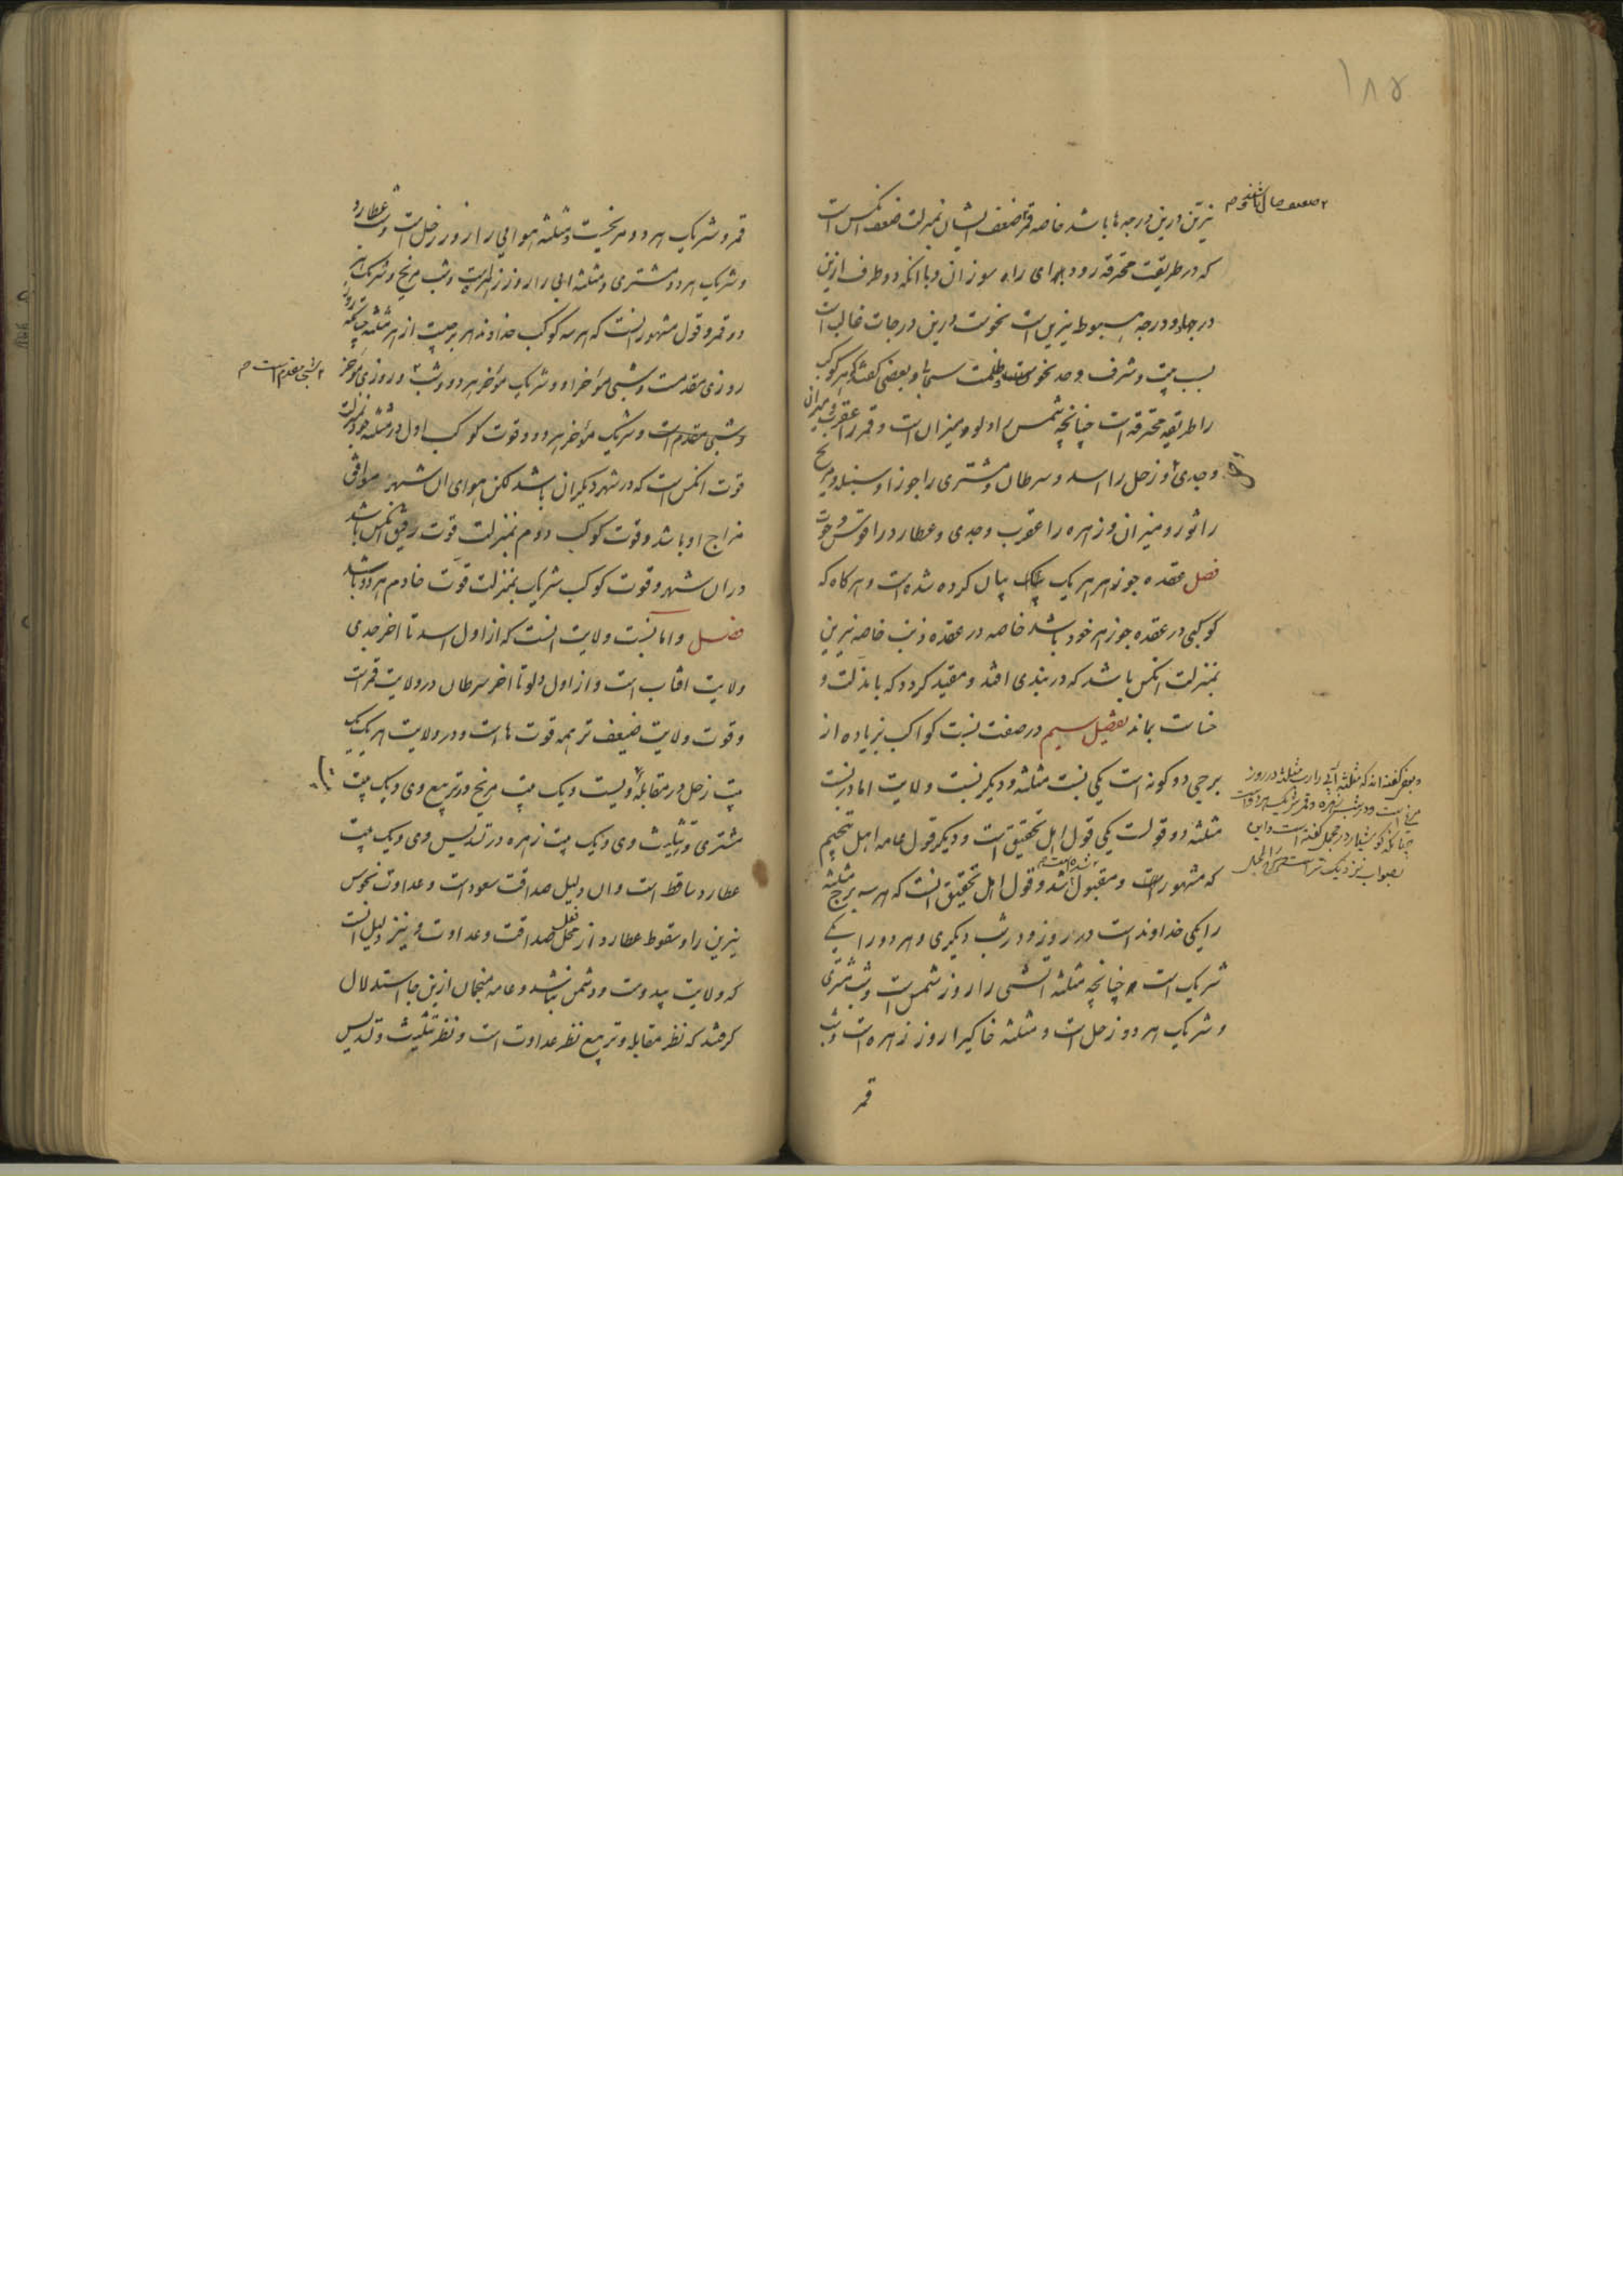 ۱۸۵
نیرین درین درجه ها باشد خاصه قمر ضعف ایشان بمنزلت ضعف انکس است
که در طریقت محترقه رود برای راه سوزان و با انکه دو طرف ازین
درجها و درجه هبوط نیرین است نحوست درین درجات غالب است
بسبب بیت و شرف و حد نحوس و ظلمت سیما و بعضی گفتند که هر کوکب
را طریقه محترقه است چنانچه شمس را دلو و میزان است و قمر را عقرب و میزان
و جدی و زحل را اسد و سرطان و مشتری را جوزا و سنبله و مریخ
را ثور و میزان و زهره را عقرب و جدی و عطارد را قوس و حوت
فصل عقده جوزهر هر یک بیان کرده شده است و هرکاه که
کوکبی در عقده جوزهر خود باشد خاصه در عقده ذنب خاصه نیرین
بمنزلت انکس باشد که در بندی افتد و مقید کردد که با مذلت و
خساست بماند تفصیل سیم در صفت نسبت کواکب بزیاده از
برجی دو کونه است یکی نسبت مثلثه و دیکر نسبت ولایت اما در نسبت
مثلثه دو قولست یکی قول اهل تحقیق است و دیکر قول عامه اهل تنجیم
که مشهور است و مقبول شده است و قول اهل تحقیق انست که هر سه برج مثلثه
را یکی خداوند است در روز و در شب دیکری و هر دو را یکی
شریک است چنانچه مثلثه اتشی را روز شمس است و شب مشتری
و شریک هر دو زحل است و مثلثه خاکی را روز زهره است و شب
قمر
و بعضی گفته اند که مثلثه آبی را رب مثلثه در روز
مریخ است و در شب زهره و قمر شریک هر دو است
چنانکه کوشیار در مجمل گفته است و این
بصواب نزدیک تر است
قمر و شریک هر دو مریخست و مثلثه هوایی را روز زحل است و شب عطارد
و شریک هر دو مشتری و مثلثه ابی را روز زهره است و شب مریخ و شریک هر
دو قمر و قول مشهور انست که هر سه کوکب خداوند هر برجیست از هر مثلثه چنانکه روز
روزی مقدمست و شبی مؤخر او و شریک مؤخر هر دو و شب و روزی مؤخر
شبی مقدم است
و شبی مقدم است و شریک مؤخر هر دو و قوت کوکب اول در مثلثه خود بمنزلت
قوت انکس است که در شهر دیکران باشد لکن هوای ان شهر موافق
مزاج او باشد و قوت کوکب دوم بمنزلت قوت رفیق انکس باشد
در ان شهر و قوت کوکب شریک بمنزلت قوت خادم هر دو باشد
فصل و اما نسبت ولایت انست که از اول اسد تا اخر جدی
ولایت افتاب است و از اول دلو تا اخر سرطان در ولایت قمر است
و قوت ولایت ضعیف تر همه قوت ها است و در ولایت هر یک یک
بیت زحل در مقابله ویست و یک بیت مریخ در تربیع وی و یک بیت
مشتری در تثلیث وی و یک بیت زهره در تسدیس وی و یک بیت
عطارد ساقط است و ان دلیل صداقت سعود است و عداوت نحوس
نیرین را و سقوط عطارد از محل صداقت و عداوت نیز دلیل انست
که ولایت بیدوست و دشمن نباشد و عامه منجمان ازین جا استدلال
کرفتند که نظر مقابله و تربیع نظر عداوت است و نظر تثلیث و تسدیس